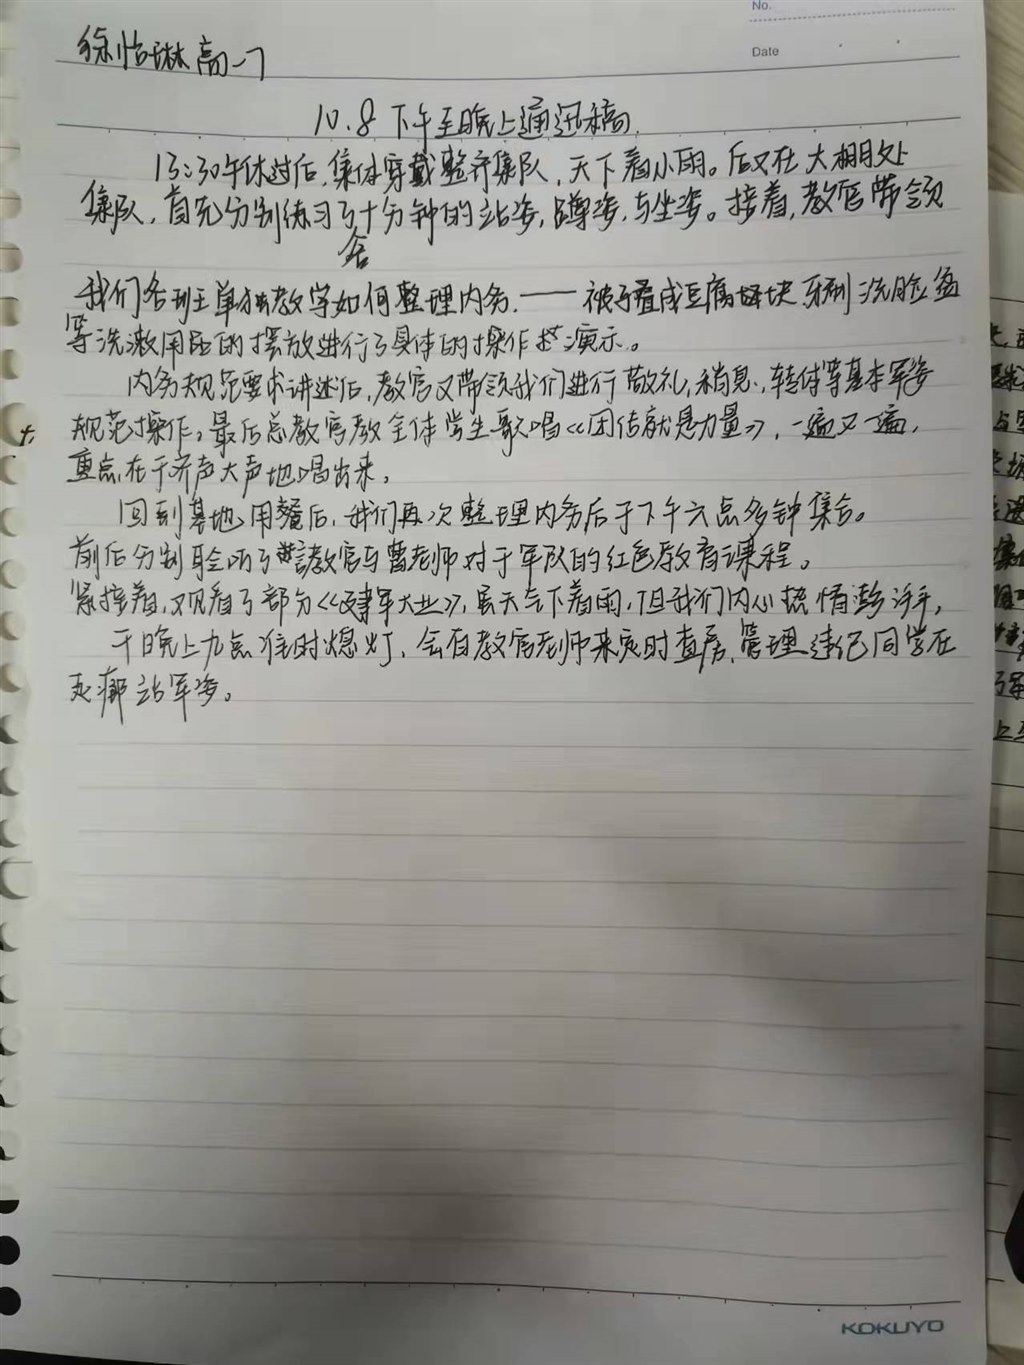 No.
Date
徐怡琳 高一7
10.8 下午至晚上通迅稿
13:30午休过后,集体穿戴整齐集队,天下着小雨。后又在大棚处
集队,首先分别练习了十分钟的站姿,蹲姿,与坐姿。接着,教官带领
我们各班主单独教学如何整理内务.——被子叠成豆腐块 牙刷 洗脸盆
等洗漱用品的摆放进行了具体的操作 演示。
内务规范要求讲述后,教官又带领我们进行敬礼,稍息,转体等基本军姿
规范操作。最后总教官教全体学生歌唱《团结就是力量》,一遍又一遍,
重点在于齐声大声地唱出来。
回到基地用餐后,我们再次整理内务后于下午六点多钟集合。
前后分别聆听了 教官与曹老师对于军队的红色教育课程。
紧接着,观看了部分《建军大业》,虽天气下着雨,但我们内心热情澎湃,
于晚上九点准时熄灯,会有教官老师来实时查房,管理违纪同学在
走廊站军姿。
KOKUYO